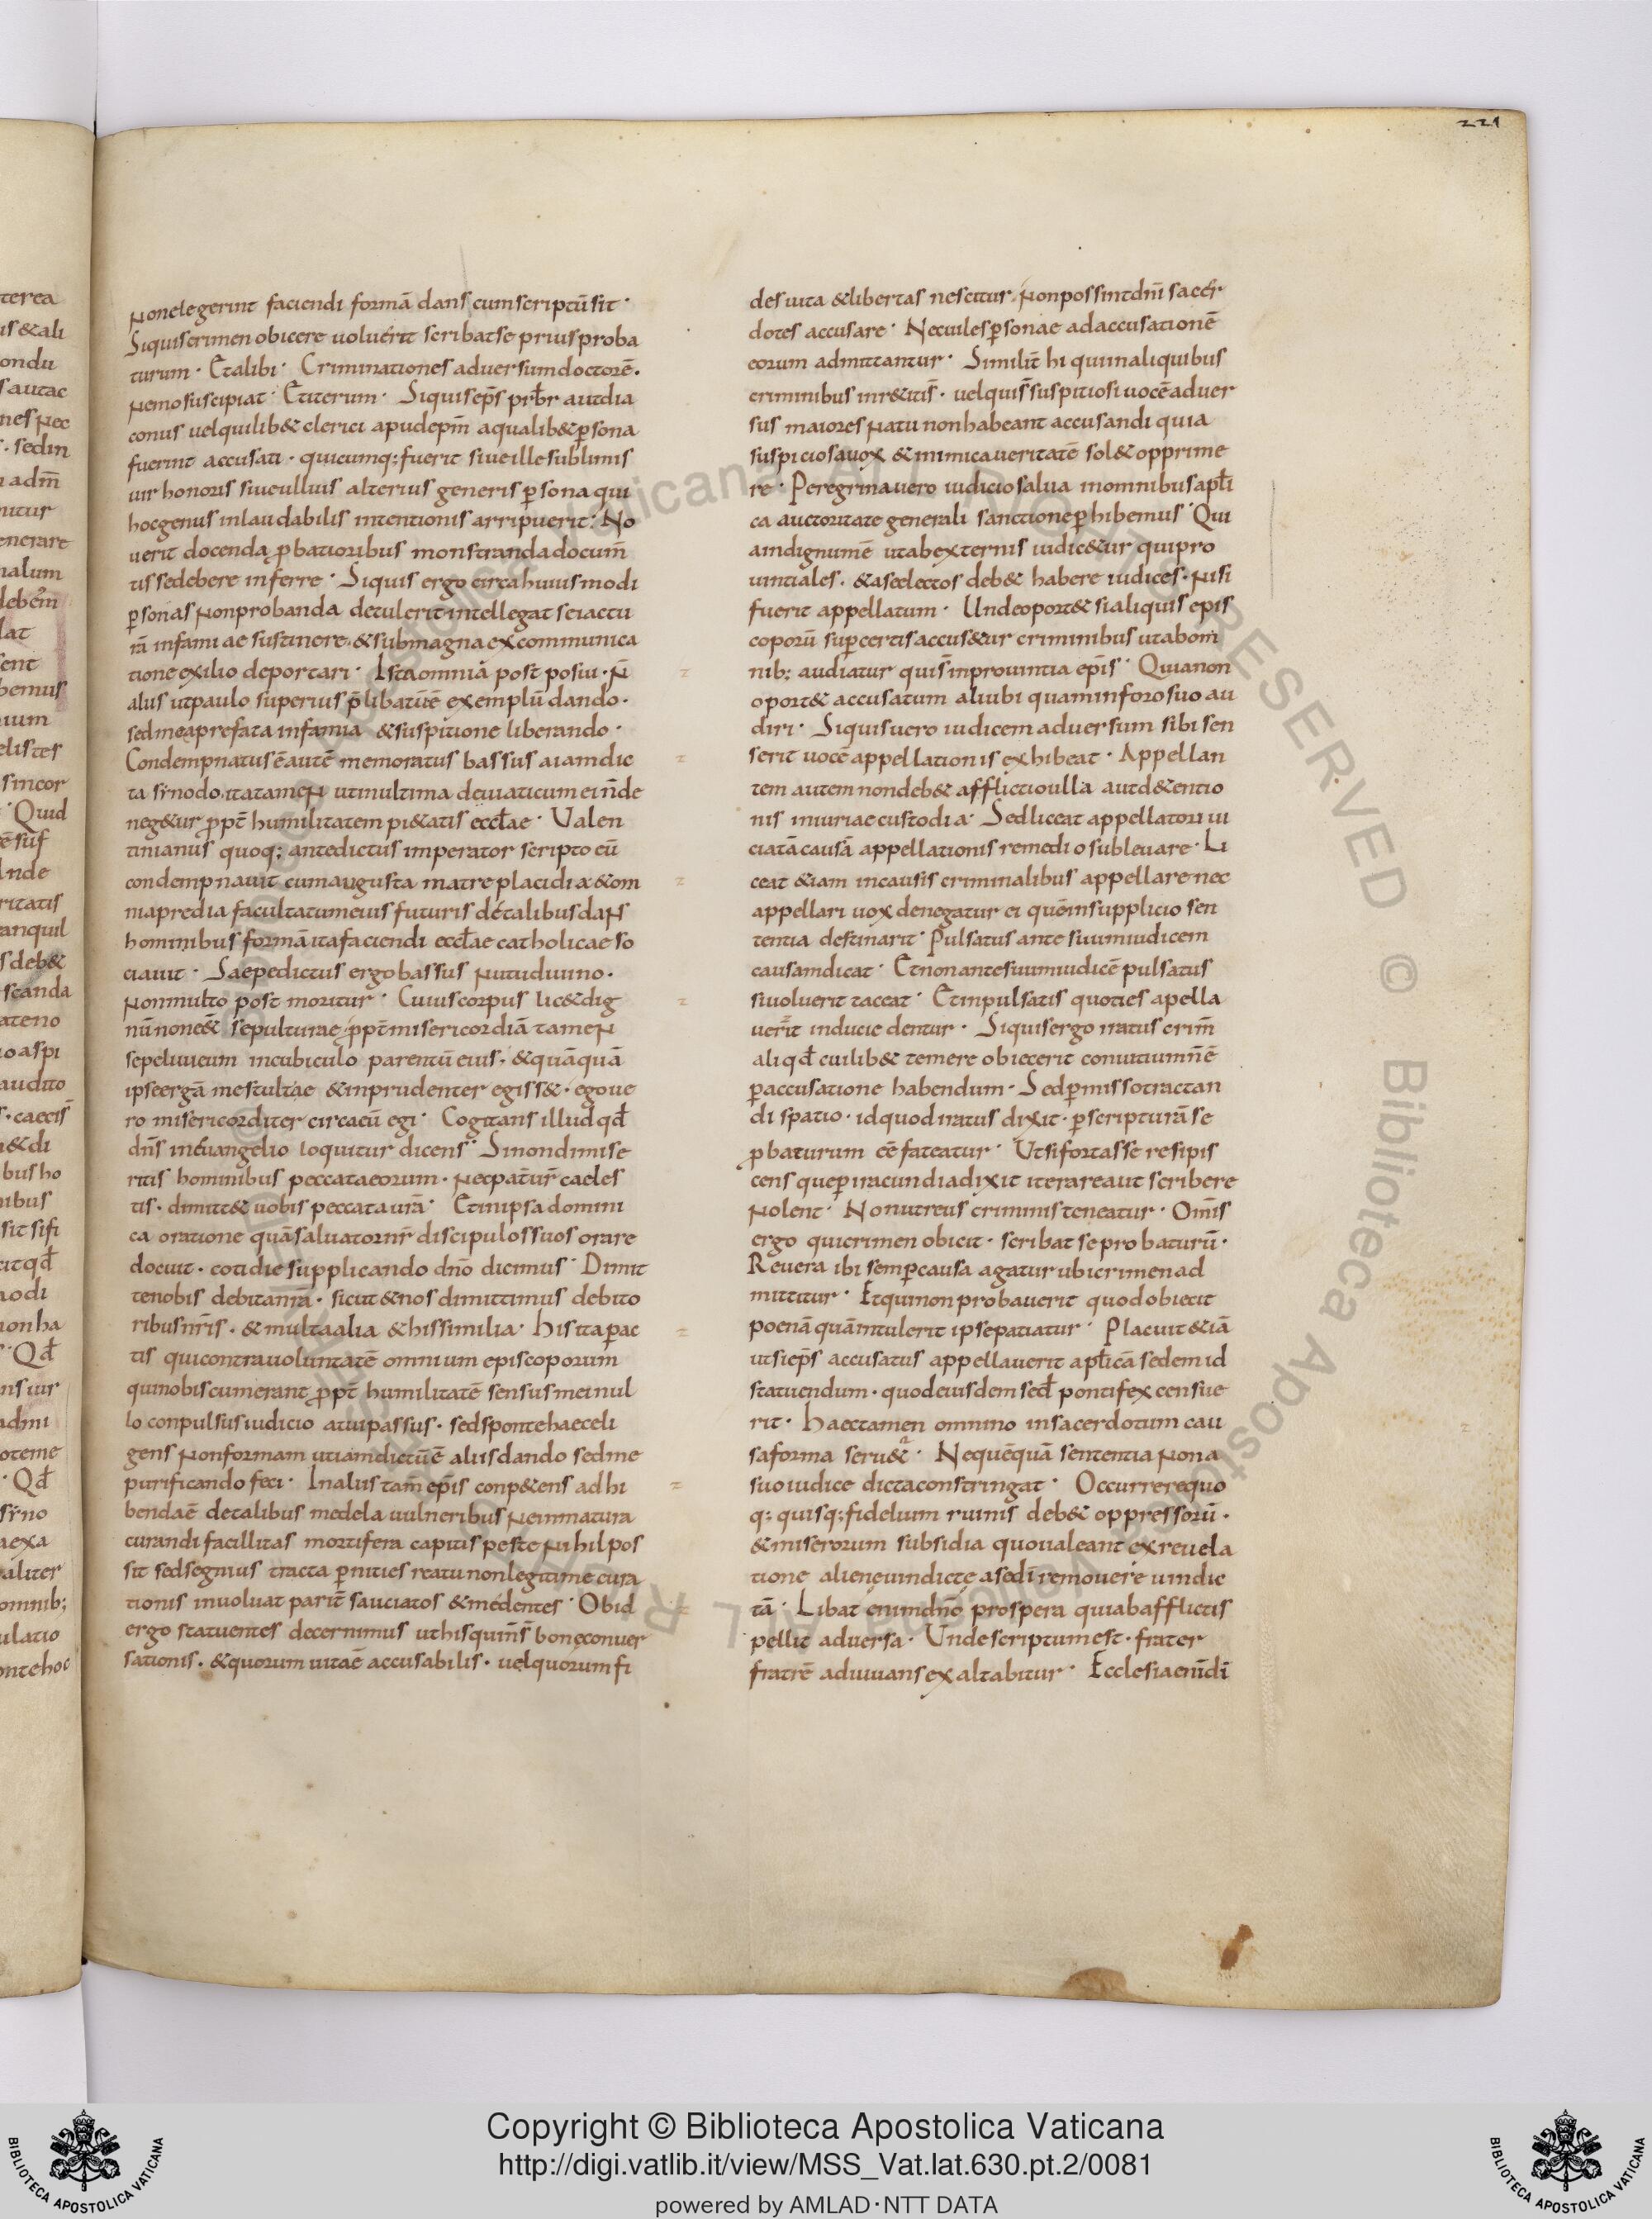 221
Nonelegerint faciendi formā dans cum scriptū sit·
Siquis crimen obicere voluerit scribat se prius proba
turum· Et alibi· Criminationes adversum doctorē·
Nemo suscipiat· Et iterum· Siquis ep̄s pr̄br aut dia
conus vel quilib& clerici apud ep̄m̄ a qualib& p̄sona
fuerint accusati· quicumq; fuerit sive ille sublimis
vir honoris sive ullius alterius generis p̄sona qui
hoc genus inlaudabilis intentionis arripuerit· No
verit docenda p̄bationibus monstranda docum̄
tis se debere inferre· Siquis ergo circa huiusmodi
p̄sonas Non probanda detulerit intellegat se iactu
rā infamiae sustinere· & sub magna excommunica
tione exilio deportari· Ista omnia post posui· N̄
aliis ut paulo superius p̄libatū ē exemplū dando·
sed me a prefata infamia & suspitione liberando·
Condempnatus ē autē memoratus bassus a iam dic
ta synodo· ita tamen ut in ultima de viaticum ei n̄ de
neg&ur p̄pt̄ humilitatem pi&atis eccl̄ae· Valen
tinianus quoq; antedictus imperator scripto eū
condempnavit cum augusta matre placidia & om
nia predia facultatum eius futuris de talibus daNs
hominibus formā ita faciendi eccl̄ae catholicae so
ciavit· Saepedictus ergo bassus Nutu divino·
Non multo post moritur· Cuius corpus lic& dig
nū non e&̄ sepulturae p̄pt̄ misericordiā tameN
sepelivi eum in cubiculo parentū eius· & quāquā
ipse ergā me stultae & inprudenter egiss&· ego ve
ro misericorditer circa eū egi· Cogitans illud qd̄
dn̄s in evangelio loquitur dicens· Si non dimise
ritis hominibus peccata eorum· Nec pat̄ ur̄ caeles
tis· dimitt& vobis peccata urā· Et in ipsa domini
ca oratione quā salvator nr̄ discipulos suos orare
docuit· cotidie supplicando dn̄o dicimus· Dimit
te nobis debita nrā· sicut & nos dimittimus debito
ribus nr̄is· & multa alia & his similia· His ita p̄ac
tis qui contra voluntatē omnium episcoporum
qui nobiscum erant p̄pt̄ humilitatē sensus mei nul
lo conpulsus iudicio atui passus· sed sponte haec eli
gens Non formam ut iam dictū ē aliis dando sed me
purificando feci· In aliis tam̄ ep̄is conp&ens adhi
benda ē de talibus medela vulneribus Nemmatura
curandi facillitas mortifera capitis peste Nihil pos
sit sed segnius tracta p̄nities reatu non legitime cura
tionis involvat parit̄ sauciatos & medentes· Ob id
ergo statuentes decernimus ut hi qui n̄ s̄ bone conver
sationis· & quorum vita ē accusabilis· vel quorum fi
des vita & libertas nescitur· Non possint dn̄i sacer
dotes accusare· Nec viles p̄sonae ad accusationē
eorum admittantur· Similit̄ hi qui in aliquibus
criminibus inr&itis̄· vel qui s̄ suspitiosi vocē adver
sus maiores Natu non habeant accusandi quia
suspiciosa vox & inimica veritatē sol& opprime
re· Peregrina vero iudicio salva in omnibus apl̄i
ca auctoritate generali sanctione p̄hibemus· Qui
a indignum ē ut ab externis iudic&ur qui pro
vintiales· & a se electos deb& habere iudices· Nisi
fuerit appellatum· Unde oport& si aliquis epis
coporū sup̄ certis accus&ur criminibus ut ab om̄
nib; audiatur qui s̄ in provintia ep̄is· Quia non
oport& accusatum aliubi quam in foro suo au
diri· Siquis vero iudicem adversum sibi sen
serit vocē appellationis exhibeat· Appellan
tem autem non deb& afflictio ulla aut d&entio
nis iniuriae custodia· Sed liceat appellatori vi
ciatā causā appellationis remedio sublevare· Li
ceat &iam in causis criminalibus appellare nec
appellari vox denegatur ei quē in supplicio sen
tentia destinarit· Pulsatus ante suum iudicem
causam dicat· Et non ante suum iudicē pulsatus
si voluerit taceat· Et inpulsatis quoties apella
verit inducie dentur· Siquis ergo iratus crim̄
aliqd̄ cuilib& temere obiecerit convitium n̄ ē
p̄ accusatione habendum· Sed p̄misso tractan
di spatio· id quod iratus dixit· p̄ scripturā se
p̄baturum ēē fateatur· Ut si fortasse resipis
cens que p̄ iracundia dixit iterare aut scribere
Nolent· Non ut reus criminis teneatur· Om̄is
ergo qui crimen obicit· scribat se probaturū·
Revera ibi semp̄ causa agatur ubi crimen ad
mittitur· Et qui non probaverit quod obiecit
poenā quā intulerit ipse patiatur· Placuit &iā
ut si ep̄s accusatus appellaverit apl̄icā sedem id
statuendum· quod eiusdem sed̄ pontifex censue
rit· Haec tamen omnino in sacerdotum cau
sa forma serv&a· Ne quēquā sententia Non a
suo iudice dicta constringat· Occurrere quo
q; quisq; fidelium ruinis deb& oppressorū·
& miserorum subsidia quo valeant ex revela
tione aliene vindicte a se dī removere vindic
tā· Libat enim dn̄o prospera qui ab afflictis
pellit adversa· Unde scriptum est· frater
fratrē adiuvans exaltabitur· Ecclesia enī dī
terea
is & ali
ondu
s autac
nes Nec
· sed in
adm̄
nitur
enerare
malum
lat
sent
bemus
elistes
sincor
Quid
ritatis
anquil
s deb&
scanda
ateno
o aspi
audito
s· caecis̄
&di
bus ho
nibus
sit sifi
cit qd̄
aodi
ion ha
· Qd̄
ns vir
admi
oteme
· Qd̄
syno
aexa
aliter
omnib;
ulatio
onte hoc
Copyright © Biblioteca Apostolica Vaticana
http://digi.vatlib.it/view/MSS_Vat.lat.630.pt.2/0081
powered by AMLAD·NTT DATA
BIBLIOTECA APOSTOLICA VATICANA
BIBLIOTECA APOSTOLICA VATICANA